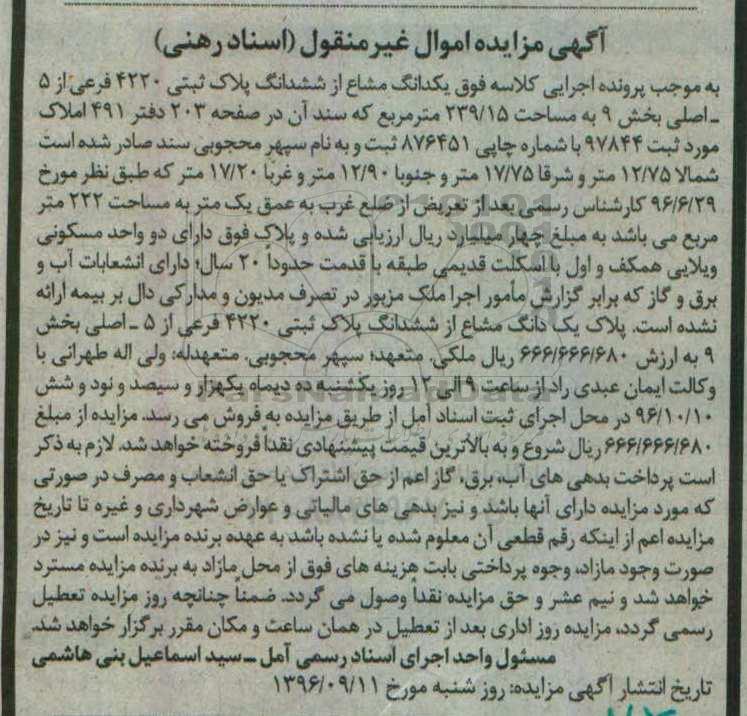 آگهی مزایده اموال غیرمنقول (اسناد رهنی)
به موجب پرونده اجرایی کلاسه فوق یکدانگ مشاع از ششدانگ پلاک ثبتی ۴۲۲۰ فرعی از ۵
ـ اصلی بخش ۹ به مساحت ۲۳۹/۱۵ مترمربع که سند آن در صفحه ۲۰۳ دفتر ۴۹۱ املاک
مورد ثبت ۹۷۸۴۴ با شماره چاپی ۸۷۶۴۵۱ ثبت و به نام سپهر محجوبی سند صادر شده است
شمالا ۱۲/۷۵ متر و شرقا ۱۷/۷۵ متر و جنوبا ۱۲/۹۰ متر و غربا ۱۷/۲۰ متر که طبق نظر مورخ
۹۶/۶/۲۹ کارشناس رسمی بعد از تعریض از ضلع غرب به عمق یک متر به مساحت ۲۲۲ متر
مربع می باشد به مبلغ چهار میلیارد ریال ارزیابی شده و پلاک فوق دارای دو واحد مسکونی
ویلایی همکف و اول با اسکلت قدیمی طبقه با قدمت حدوداً ۲۰ سال؛ دارای انشعابات آب و
برق و گاز که برابر گزارش مأمور اجرا ملک مزبور در تصرف مدیون و مدارکی دال بر بیمه ارائه
نشده است. پلاک یک دانگ مشاع از ششدانگ پلاک ثبتی ۴۲۲۰ فرعی از ۵ ـ اصلی بخش
۹ به ارزش ۶۶۶/۶۶۶/۶۸۰ ریال ملکی. متعهد؛ سپهر محجوبی. متعهدله: ولی اله طهرانی با
وکالت ایمان عبدی راد از ساعت ۹ الی ۱۲ روز یکشنبه ده دیماه یکهزار و سیصد و نود و شش
۹۶/۱۰/۱۰ در محل اجرای ثبت اسناد آمل از طریق مزایده به فروش می رسد. مزایده از مبلغ
۶۶۶/۶۶۶/۶۸۰ ریال شروع و به بالاترین قیمت پیشنهادی نقداً فروخته خواهد شد. لازم به ذکر
است پرداخت بدهی های آب، برق، گاز اعم از حق اشتراک یا حق انشعاب و مصرف در صورتی
که مورد مزایده دارای آنها باشد و نیز بدهی های مالیاتی و عوارض شهرداری و غیره تا تاریخ
مزایده اعم از اینکه رقم قطعی آن معلوم شده یا نشده باشد به عهده برنده مزایده است و نیز در
صورت وجود مازاد، وجوه پرداختی بابت هزینه های فوق از محل مازاد به برنده مزایده مسترد
خواهد شد و نیم عشر و حق مزایده نقداً وصول می گردد. ضمناً چنانچه روز مزایده تعطیل
رسمی گردد، مزایده روز اداری بعد از تعطیل در همان ساعت و مکان مقرر برگزار خواهد شد.
مسئول واحد اجرای اسناد رسمی آمل ـ سید اسماعیل بنی هاشمی
تاریخ انتشار آگهی مزایده: روز شنبه مورخ ۱۳۹۶/۰۹/۱۱
ParsNamadData